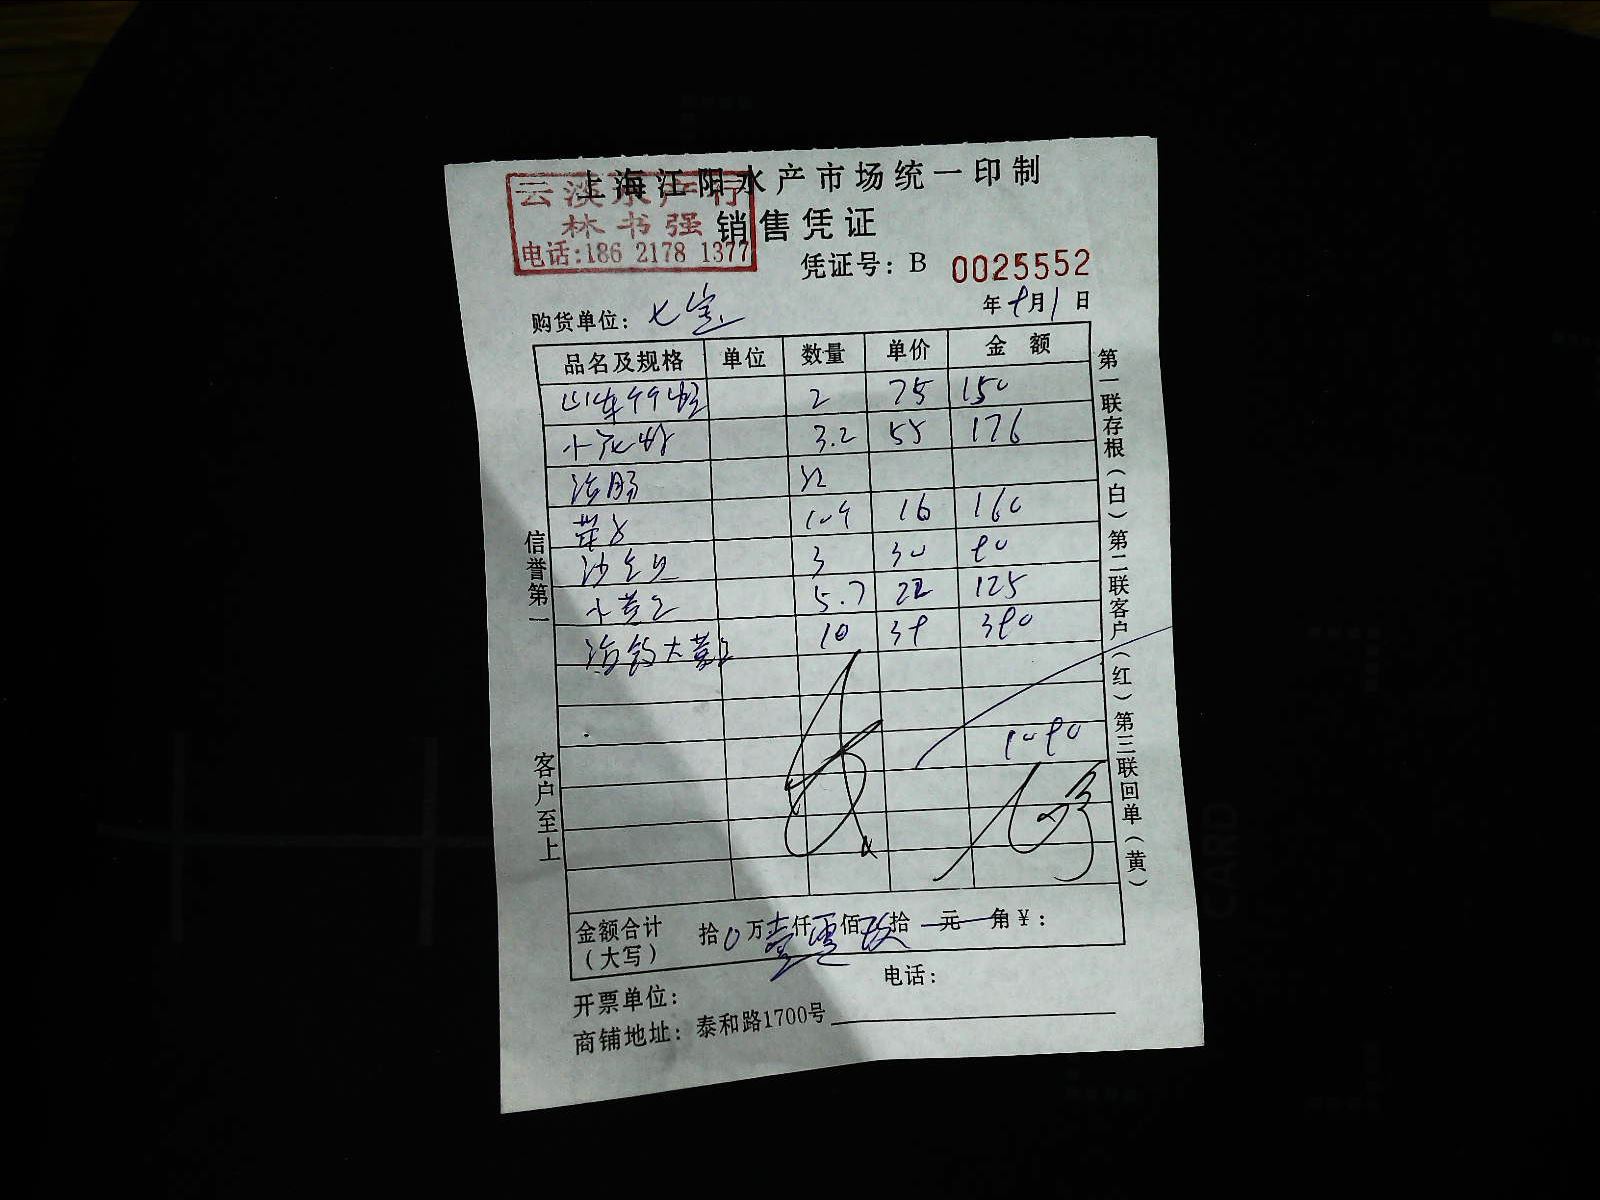 上海江阳水产市场统一印制
云淡水产行
林书强
电话:186 2178 1377
销售凭证
凭证号：B 0025552
购货单位：七宝
年 9月1日
品名及规格 单位 数量 单价 金额
2 75 150
小花蛤 3.2 55 176
海肠
10斤 16 160
3 30 90
小黄 5.7 22 125
10 39 390
1090
金额合计（大写） 拾0万壹仟零佰玖拾 元 角￥：
开票单位： 电话：
商铺地址：泰和路1700号
信誉第一
客户至上
第一联存根（白）第二联客户（红）第三联回单（黄）
CARD